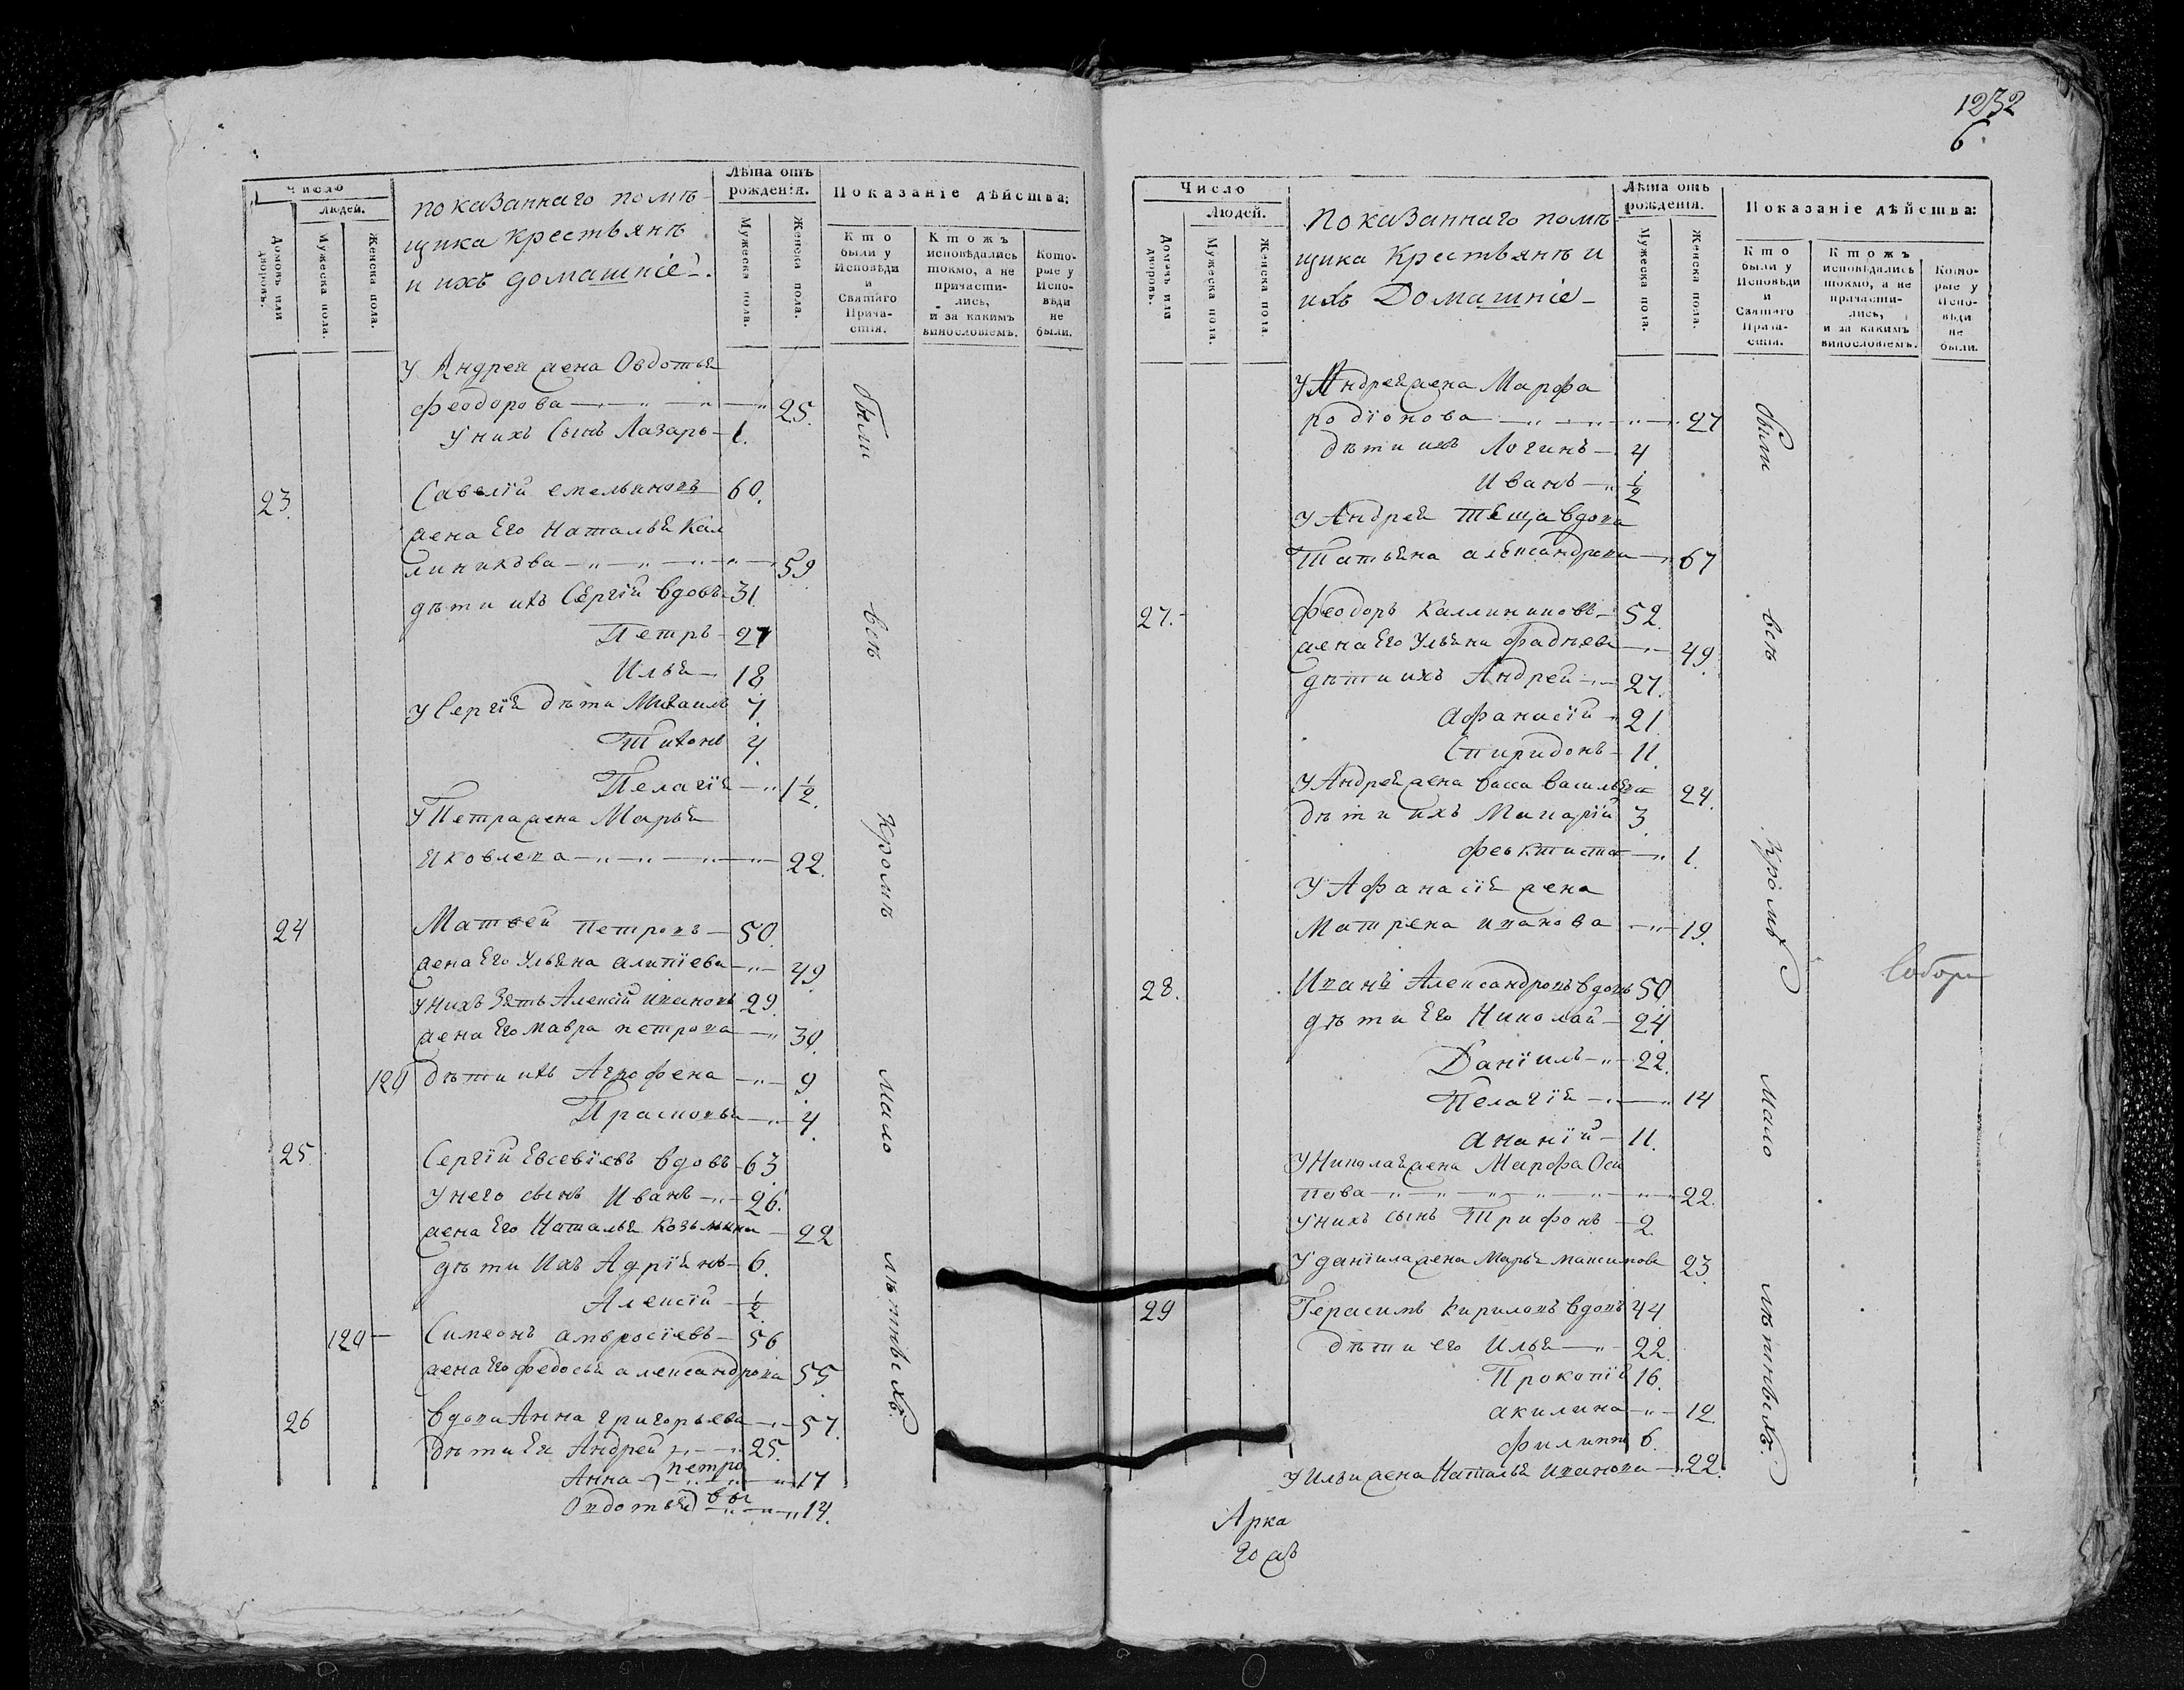 Число
Людей.
Домовъ или дворовъ.
Мужеска пола.
Женска пола.
показаннаго помѣ-
щика крестьянѣ
и ихъ домашніе.
Лѣта отъ рожденія.
Мужеска пола.
Женска пола.
Показаніе дѣйства:
Кто были у Исповѣди и Святаго Причастія.
Ктожъ исповѣдались токмо, а не причастились, и за какимъ винословіемъ.
Которые у Исповѣди не были.
У Андрея жена Овдотья
Феодорова 25.
У нихъ сынъ Лазарь 1.
23. Савелій Емельяновъ 60.
жена Его Наталья Кал
линикова 59
дѣти ихъ Сергій вдовъ 31
Петръ 27
Илья 18
У Сергія дѣти Михаилъ 7
Тихонъ 4
Пелагія 1 1/2.
У Петра жена Марья
Яковлева 22.
24 Матвей Петровъ 50
жена Его Ульяна Алипіева 49
у нихъ зять Алексій Ивановъ 29.
жена Его Мавра Петрова 30.
120 дѣти ихъ Агрофена 9
Прасковья 4
25. Сергій Евсевіевъ вдовъ 63
у него сынъ Иванъ 26.
жена Его Наталья Козьмина 22
дѣти ихъ Адріянъ 6.
Алексій 1/2
120 Симеонъ Амвросіевъ 56
жена Его Федосья Александрова 55
26 вдова Анна Григорьева 57.
дѣти Ея Андрей 25.
Анна 17
Овдотья 14.
петровы
были всѣ кромѣ мало лѣтныхъ
1232
6
Число
Людей.
Домовъ или дворовъ.
Мужеска пола.
Женска пола.
показаннаго помѣ
щика крестьянѣ и
ихъ Домашніе
Лѣта отъ рожденія.
Мужеска пола.
Женска пола.
Показаніе дѣйства:
Кто были у Исповѣди и Святаго Причастія.
Ктожъ исповѣдались токмо, а не причастились, и за какимъ винословіемъ.
Которые у Исповѣди не были.
У Андрея жена Марфа
родіонова 27
дѣти ихъ Логинъ 4
Иванъ 1/2
У Андрея теща вдова
Татьяна Александрова 67
27. Феодоръ Каллиниковъ 52.
жена Его Ульяна Фадѣева 49
дѣти ихъ Андрей 27.
Афанасій 21
Спиридонъ 11.
У Андрея жена Васса Васильева 24.
дѣти ихъ Макарій 3
Феоктиста 1.
У Афанасія жена
Матрена Иванова 19.
28. Иванъ Александровъ вдовъ 50
дѣти Его Николай 24
Даніилъ 22.
Пелагія 14
Ананій 11.
У Николая жена Марфа Оси
пова 22.
У нихъ сынъ Трифонъ 2
У Даніила жена Марья Максимова 23
29 Герасимъ Кириловъ вдовъ 44
дѣти его Илья 22.
Прокопій 16.
Акилина 12
Филиппъ 6.
У Ильи жена Наталья Иванова 22.
были всѣ кромѣ мало лѣтныхъ
Арка